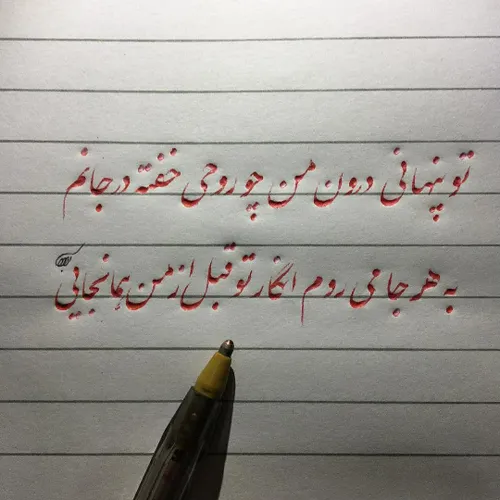 تو پنهانی درون من چو روحی خفته در جانم
به هر جا می روم انگار تو قبل از من همانجایی